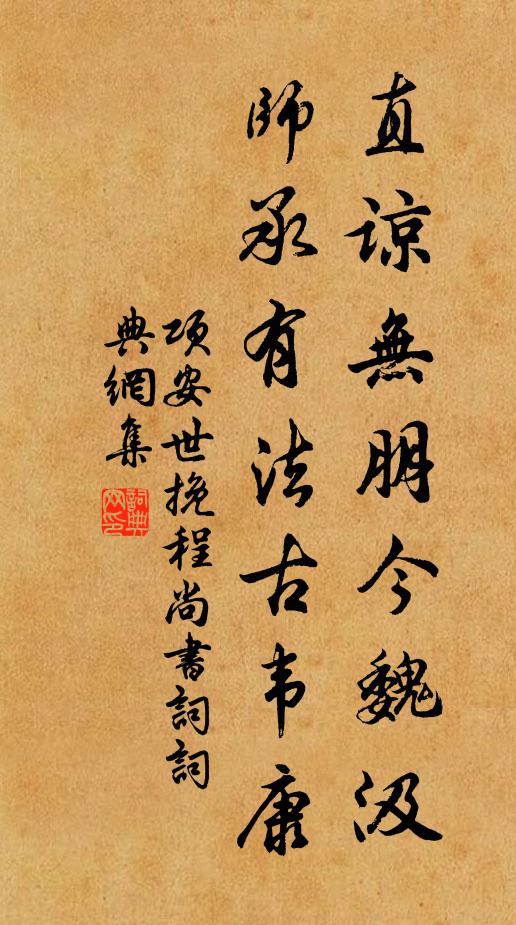 直谅無朋今魏汲
師承有法古韦康
项安世挽程尚書詞詞
典網集
詞典網印